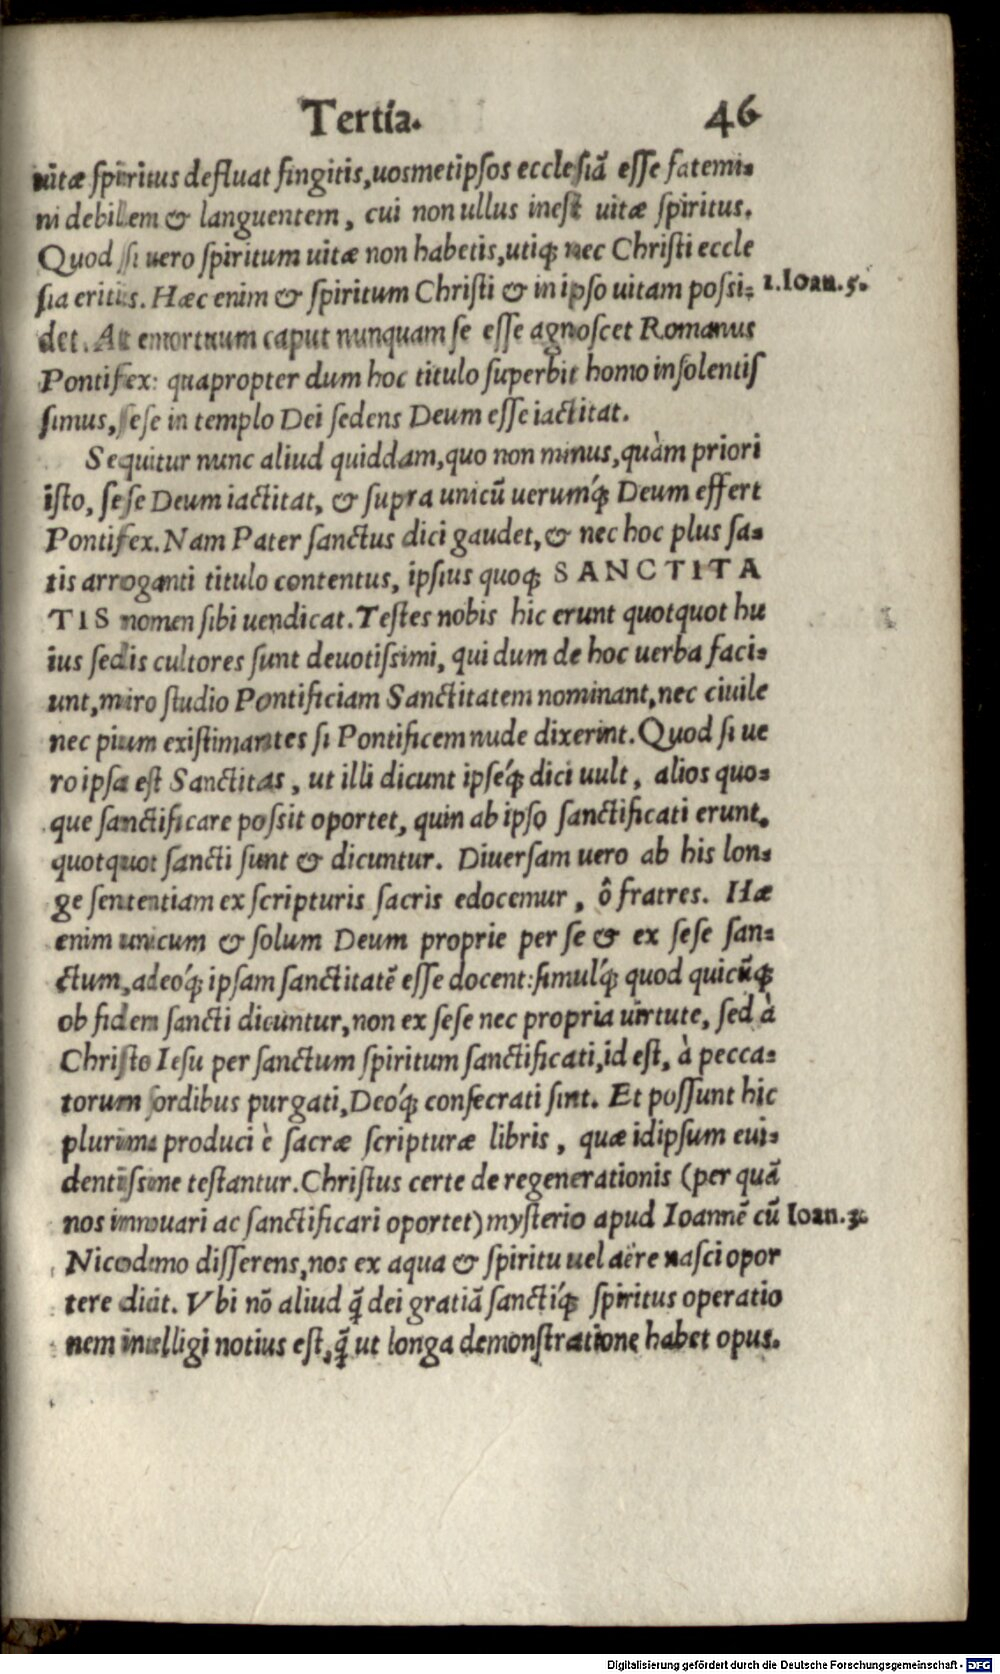 Tertia. 46
uitæ spiritus defluat fingitis, uosmetipsos ecclesiã esse fatemi-
ni debilem & languentem, cui non ullus inest uitæ spiritus.
Quod si uero spiritum uitæ non habetis, utiqꝫ nec Christi eccle
sia eritis. Hæc enim & spiritum Christi & in ipso uitam possi- 1. Ioan. 5.
det. At emortuum caput nunquam se esse agnoscet Romanus
Pontifex: quapropter dum hoc titulo superbit homo insolentis
simus, sese in templo Dei sedens Deum esse iactitat.
Sequitur nunc aliud quiddam, quo non minus, quàm priori
isto, sese Deum iactitat, & supra unicũ uerumq́ꝫ Deum effert
Pontifex. Nam Pater sanctus dici gaudet, & nec hoc plus sa-
tis arroganti titulo contentus, ipsius quoqꝫ SANCTITA
TIS nomen sibi uendicat. Testes nobis hic erunt quotquot hu
ius sedis cultores sunt deuotissimi, qui dum de hoc uerba faci-
unt, miro studio Pontificiam Sanctitatem nominant, nec ciuile
nec pium existimantes si Pontificem nude dixerint. Quod si ue
ro ipsa est Sanctitas, ut illi dicunt ipseq́ꝫ dici uult, alios quo-
que sanctificare possit oportet, quin ab ipso sanctificati erunt.
quotquot sancti sunt & dicuntur. Diuersam uero ab his lon-
ge sententiam ex scripturis sacris edocemur, ô fratres. Hæ
enim unicum & solum Deum proprie per se & ex sese san-
ctum, adeoq́ꝫ ipsam sanctitatẽ esse docent: simulq́ꝫ quod quicũqꝫ
ob fidem sancti dicuntur, non ex sese nec propria uirtute, sed à
Christo Iesu per sanctum spiritum sanctificati, id est, à pecca-
torum sordibus purgati, Deoq́ꝫ consecrati sint. Et possunt hic
plurima produci è sacræ scripturæ libris, quæ idipsum eui-
dentissime testantur. Christus certe de regenerationis (per quã
nos innouari ac sanctificari oportet) mysterio apud Ioannẽ cũ Ioan. 3.
Nicodemo disserens, nos ex aqua & spiritu uel aëre nasci opor
tere dicit. Vbi nõ aliud q̃ dei gratiã sanctiq́ꝫ spiritus operatio
nem intelligi notius est, q̃ ut longa demonstratione habet opus.
Digitalisierung gefördert durch die Deutsche Forschungsgemeinschaft - DFG